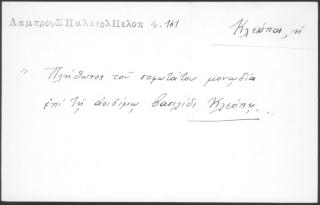 Λαμπρου Σ. Παλαιολ Πελοπ 4. 161
Κλεόπα, ἡ
"Πλήθωνος τοῦ σοφωτάτου μονῳδία
ἐπὶ τῇ ἀοιδίμῳ βασιλίδι Κλεόπῃ..